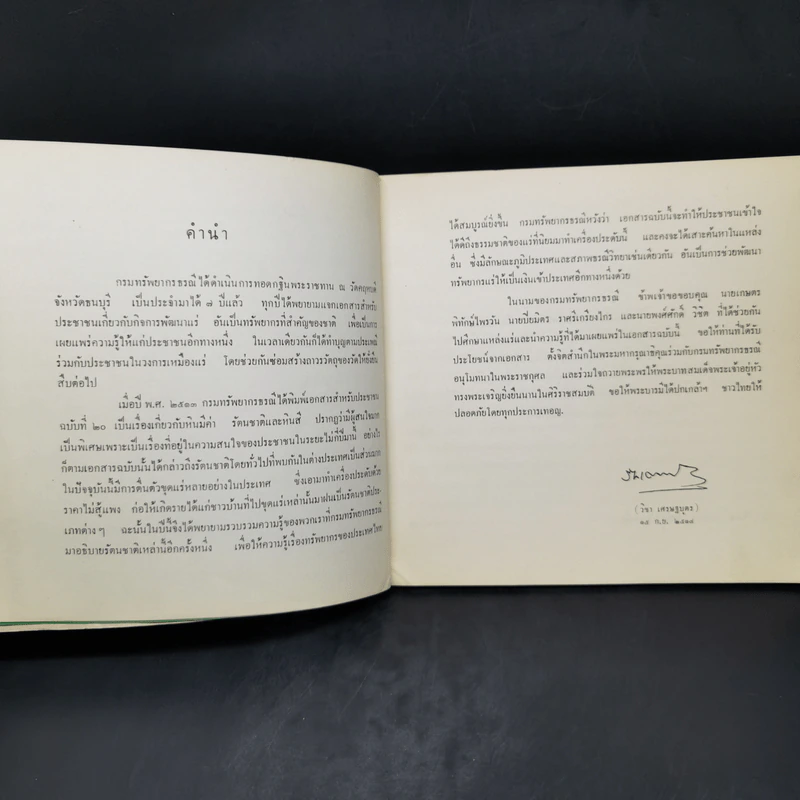 คำนำ
กรมทรัพยากรธรณีได้ดำเนินการทอดกฐินพระราชทาน ณ วัดคฤหบดี
จังหวัดธนบุรี เป็นประจำมาได้ ๗ ปีแล้ว ทุกปีได้พยายามแจกเอกสารสำหรับ
ประชาชนเกี่ยวกับกิจการพัฒนาแร่ อันเป็นทรัพยากรที่สำคัญของชาติ เพื่อเป็นการ
เผยแพร่ความรู้ให้แก่ประชาชนอีกทางหนึ่ง ในเวลาเดียวกันก็ได้ทำบุญตามประเพณี
ร่วมกับประชาชนในวงการเหมืองแร่ โดยช่วยกันซ่อมสร้างถาวรวัตถุของวัดให้ยั่งยืน
สืบต่อไป
เมื่อปี พ.ศ. ๒๕๑๓ กรมทรัพยากรธรณีได้พิมพ์เอกสารสำหรับประชาชน
ฉบับที่ ๒๐ เป็นเรื่องเกี่ยวกับหินมีค่า รัตนชาติและหินสี ปรากฏว่ามีผู้สนใจมาก
เป็นพิเศษเพราะเป็นเรื่องที่อยู่ในความสนใจของประชาชนในระยะไม่กี่ปีมานี้ อย่างไร
ก็ตามเอกสารฉบับนั้นได้กล่าวถึงรัตนชาติโดยทั่วไปที่พบกันในต่างประเทศเป็นส่วนมาก
ในปัจจุบันนี้มีการตื่นตัวขุดแร่หลายอย่างในประเทศ ซึ่งเอามาทำเครื่องประดับด้วย
ราคาไม่สู้แพง ก่อให้เกิดรายได้แก่ชาวบ้านที่ไปขุดแร่เหล่านั้นมาฝนเป็นรัตนชาติประ-
เภทต่างๆ ฉะนั้นในปีนี้จึงได้พยายามรวบรวมความรู้ของพวกเราที่กรมทรัพยากรธรณี
มาอธิบายรัตนชาติเหล่านี้อีกครั้งหนึ่ง เพื่อให้ความรู้เรื่องทรัพยากรของประเทศไทย
ได้สมบูรณ์ยิ่งขึ้น กรมทรัพยากรธรณีหวังว่า เอกสารฉบับนี้จะทำให้ประชาชนเข้าใจ
ได้ดีถึงธรรมชาติของแร่ที่นิยมมาทำเครื่องประดับนี้ และคงจะได้เสาะค้นหาในแหล่ง
อื่น ซึ่งมีลักษณะภูมิประเทศและสภาพธรณีวิทยาเช่นเดียวกัน อันเป็นการช่วยพัฒนา
ทรัพยากรแร่ให้เป็นเงินเข้าประเทศอีกทางหนึ่งด้วย
ในนามของกรมทรัพยากรธรณี ข้าพเจ้าขอขอบคุณ นายเกษตร
พิทักษ์ไพรวัน นายปิ่ยมิตร ราศรีเรียงไกร และนายพงศ์ศักดิ์ วิชิต ที่ได้ช่วยกัน
ไปศึกษาแหล่งแร่และนำความรู้ที่ได้มาเผยแพร่ในเอกสารฉบับนี้ ขอให้ท่านที่ได้รับ
ประโยชน์จากเอกสาร ตั้งจิตสำนึกในพระมหากรุณาธิคุณร่วมกับกรมทรัพยากรธรณี
อนุโมทนาในพระราชกุศล และร่วมใจถวายพระพรให้พระบาทสมเด็จพระเจ้าอยู่หัว
ทรงพระเจริญยิ่งยืนนานในศิริราชสมบัติ ขอให้พระบารมีได้ปกเกล้าฯ ชาวไทยให้
ปลอดภัยโดยทุกประการเทอญ.
( วิชา เศรษฐบุตร )
๑๕ ก.ย. ๒๕๑๔